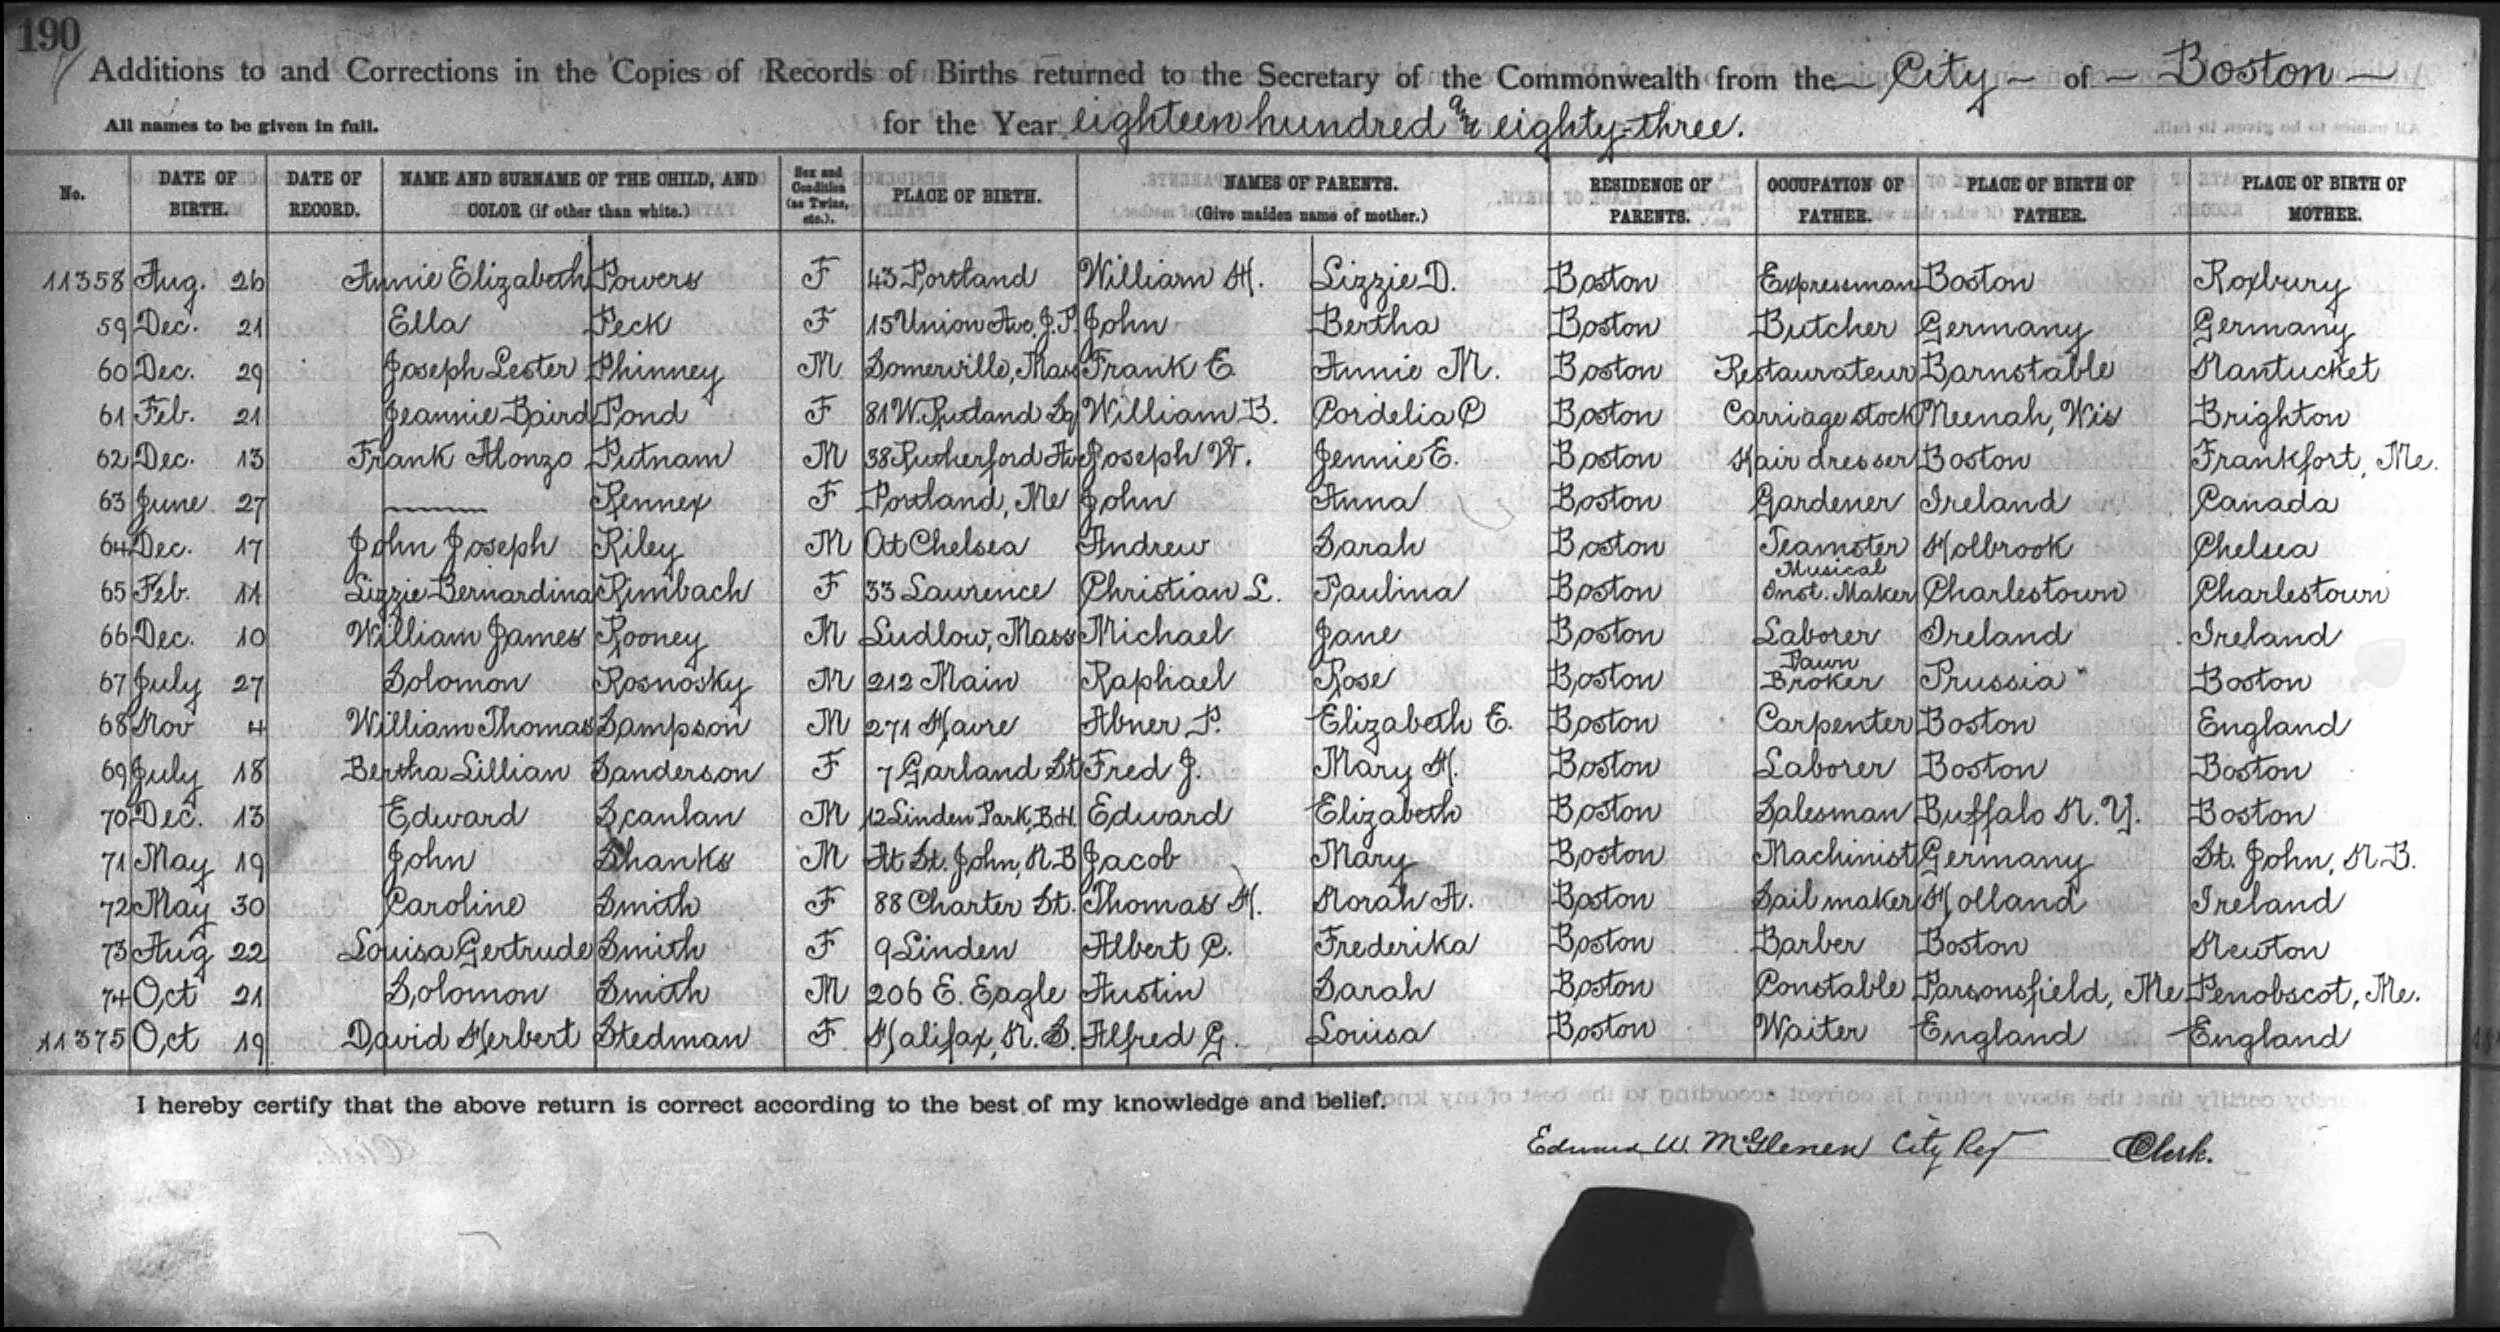 190
Additions to and Corrections in the Copies of Records of Births returned to the Secretary of the Commonwealth from the City of Boston
All names to be given in full.
for the Year eighteen hundred and eighty-three.
No. DATE OF BIRTH. DATE OF RECORD. NAME AND SURNAME OF THE CHILD, AND COLOR (if other than white.) Sex and Condition (as Twins, etc.). PLACE OF BIRTH. NAMES OF PARENTS. (Give maiden name of mother.) RESIDENCE OF PARENTS. OCCUPATION OF FATHER. PLACE OF BIRTH OF FATHER. PLACE OF BIRTH OF MOTHER.
11358 Aug. 26 Annie Elizabeth Powers F 43 Portland William H. Lizzie D. Boston Expressman Boston Roxbury
59 Dec. 21 Ella Peck F 15 Union Ave, J.P. John Bertha Boston Butcher Germany Germany
60 Dec. 29 Joseph Lester Phinney M Somerville, Mass Frank E. Annie M. Boston Restaurateur Barnstable Nantucket
61 Feb. 21 Jeannie Baird Pond F 81 W. Rutland Sq William B. Cordelia C Boston Carriage stock Neenah, Wis Brighton
62 Dec. 13 Frank Alonzo Putnam M 38 Rutherford Av Joseph W. Jennie E. Boston Hair dresser Boston Frankfort, Me.
63 June 27 Rennex F Portland, Me John Anna Boston Gardener Ireland Canada
64 Dec. 17 John Joseph Riley M At Chelsea Andrew Sarah Boston Teamster Holbrook Chelsea
65 Feb. 11 Lizzie Bernardina Rimbach F 33 Laurence Christian L. Paulina Boston Musical Inst. Maker Charlestown Charlestown
66 Dec. 10 William James Rooney M Ludlow, Mass Michael Jane Boston Laborer Ireland Ireland
67 July 27 Solomon Rosnosky M 212 Main Raphael Rose Boston Pawn Broker Prussia Boston
68 Nov 4 William Thomas Sampson M 271 Havre Abner P. Elizabeth E. Boston Carpenter Boston England
69 July 18 Bertha Lillian Sanderson F 7 Garland St Fred J. Mary H. Boston Laborer Boston Boston
70 Dec. 13 Edward Scanlan M 12 Linden Park, B.H. Edward Elizabeth Boston Salesman Buffalo N.Y. Boston
71 May 19 John Shanks M At St. John, N.B Jacob Mary Boston Machinist Germany St. John, N.B.
72 May 30 Caroline Smith F 88 Charter St. Thomas H. Norah A. Boston Sail maker Holland Ireland
73 Aug 22 Louisa Gertrude Smith F 9 Linden Albert C. Frederika Boston Barber Boston Newton
74 Oct 21 Solomon Smith M 206 E. Eagle Austin Sarah Boston Constable Parsonsfield, Me Penobscot, Me.
11375 Oct 19 David Herbert Stedman F Halifax, N.S. Alfred G. Louisa Boston Waiter England England
I hereby certify that the above return is correct according to the best of my knowledge and belief.
Edward W. McGlenen City Reg Clerk.